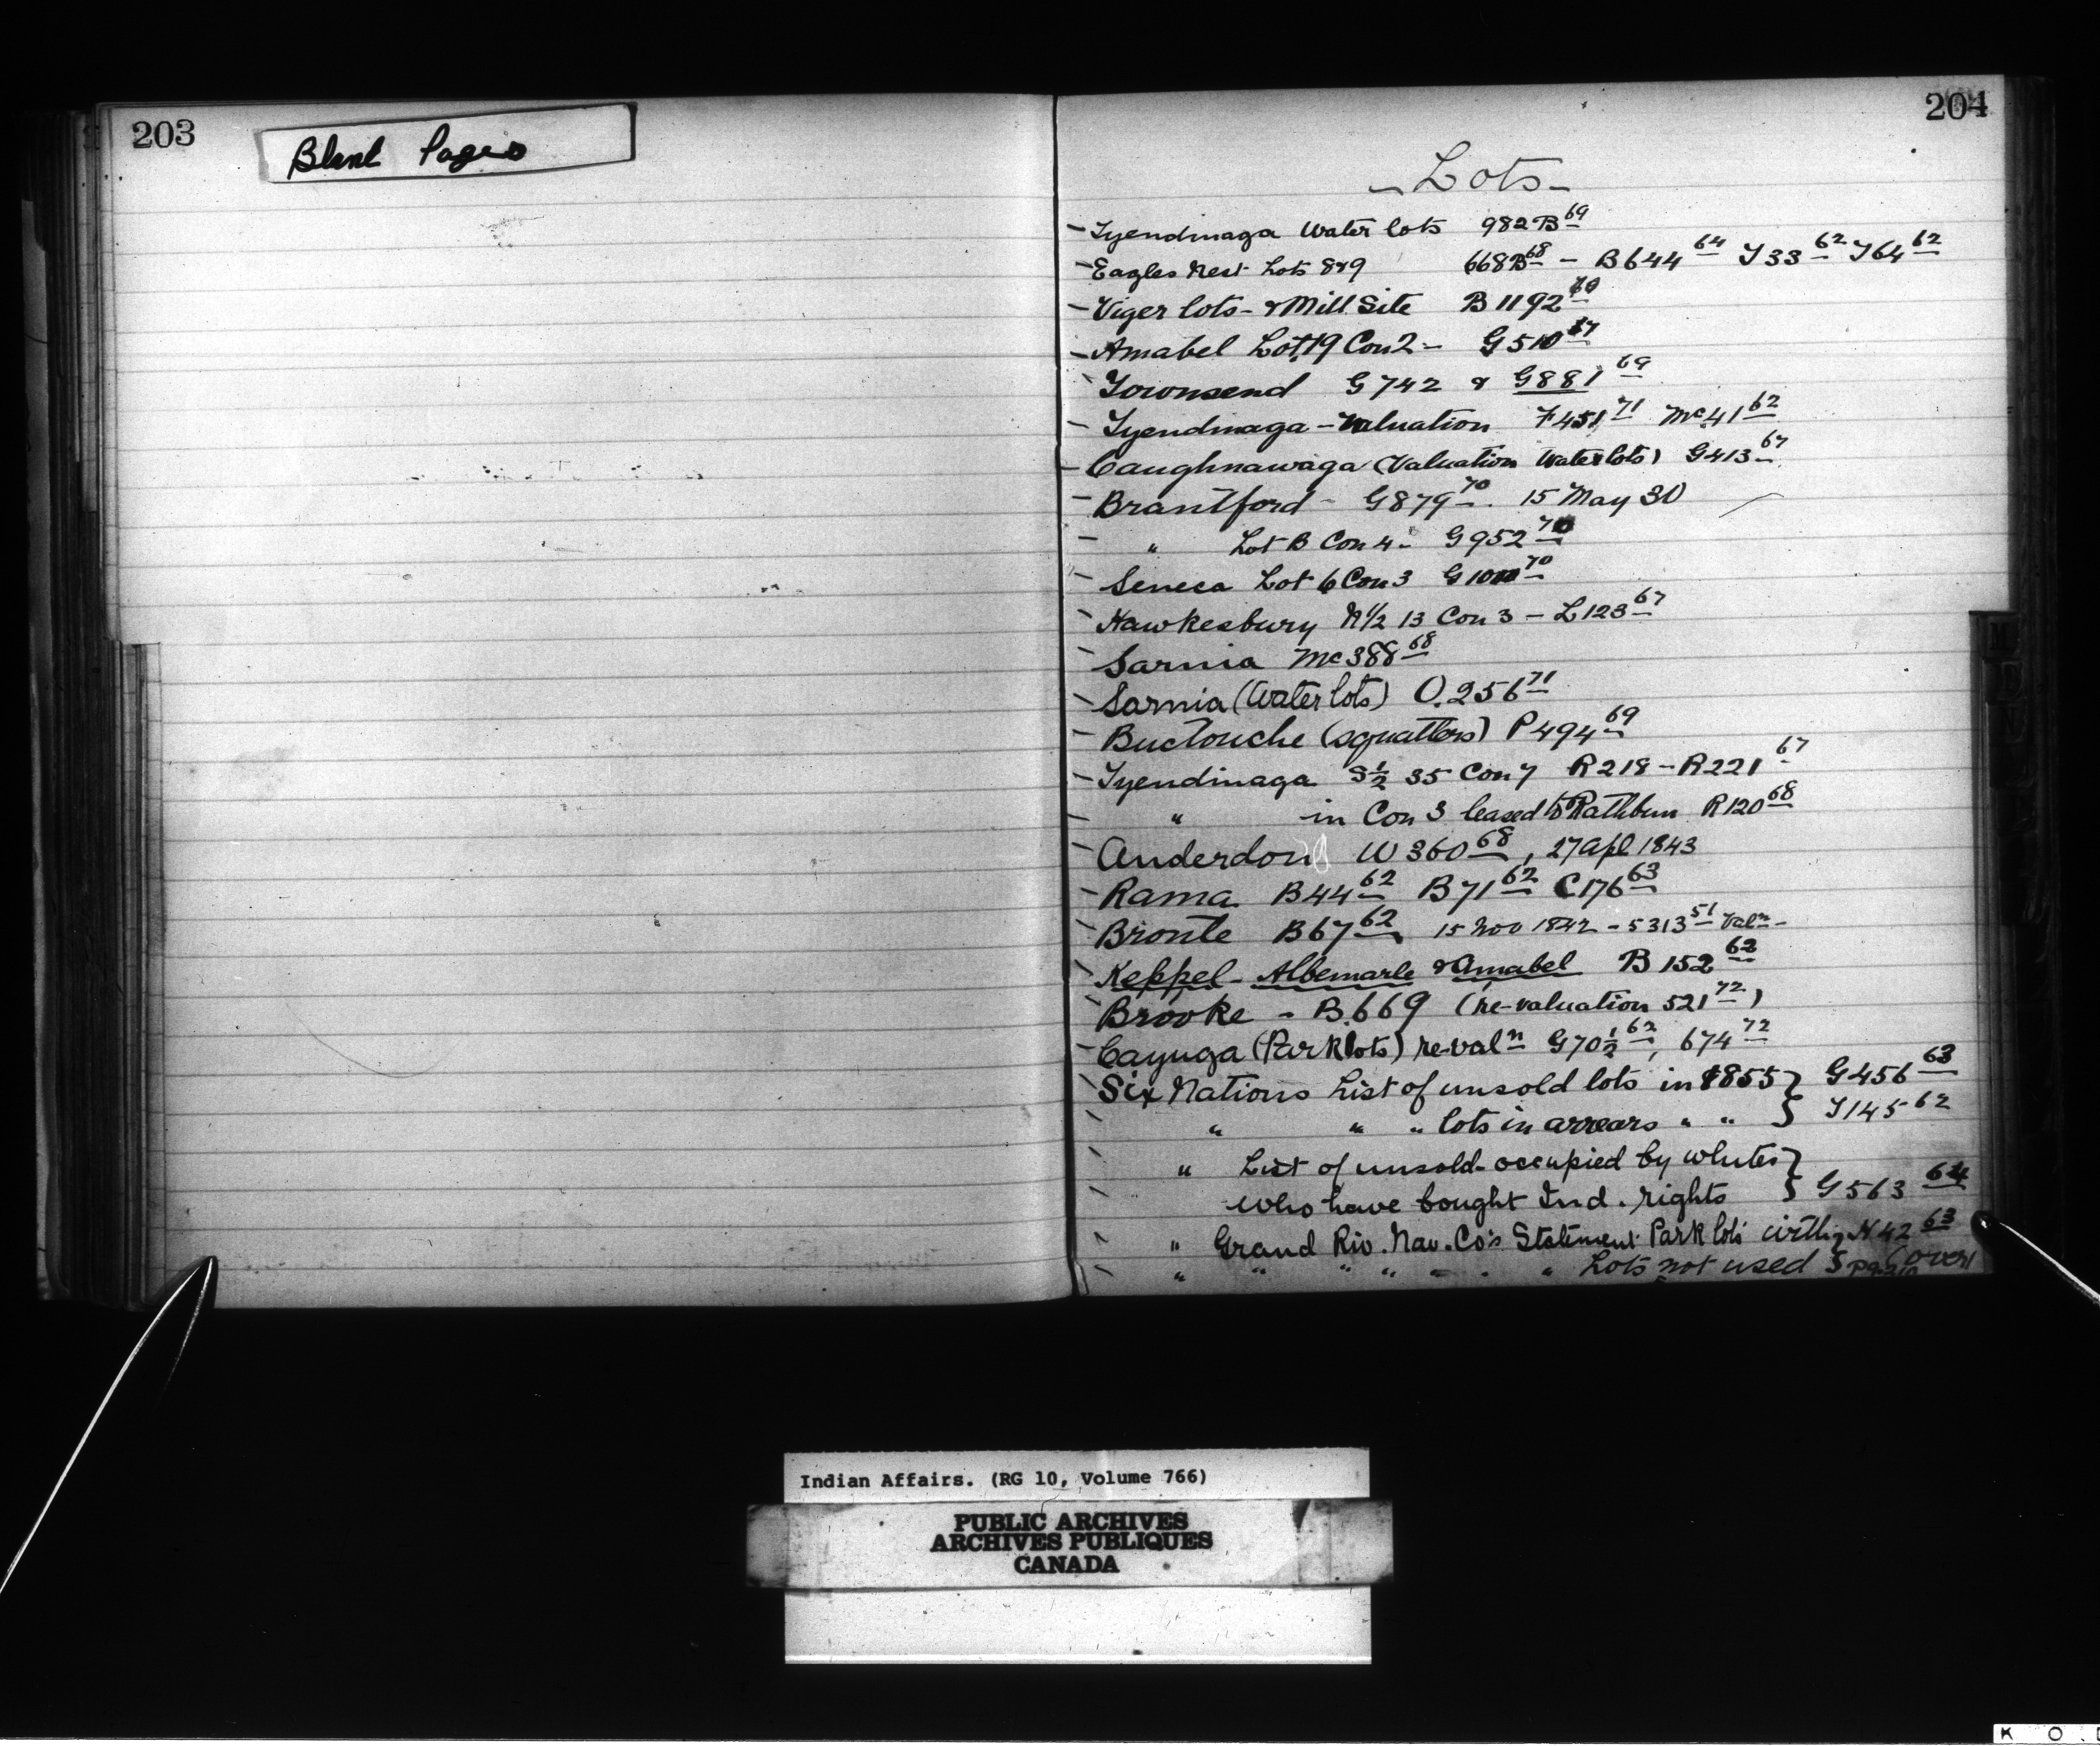 203
Blank Pages
204
- Lots -
- Tyendinaga Water lots 982 B 69
- Eagles Nest Lots 8 & 9 668 B 68 - B 644 64 T 33 62 T 64 62
- Viger lots - & Mill Site B 1192 70
- Amabel Lot 19 Con 2 - G 510 67
- Townsend G 742 & G 881 69
- Tyendinaga - Valuation F 451 71 Mc 41 62
- Caughnawaga (Valuation Water lots) G 413 67
- Brantford - G 879 70. 15 May 30
- " Lot B Con 4 - G 952 70
- Seneca Lot 6 Con 3 G 70
- Hawkesbury N 1/2 13 Con 3 - L 123 67
- Sarnia Mc 388 68
- Sarnia (Water lots) O. 256 71
- Buctouche (squatters) P 494 69
- Tyendinaga S 1/2 35 Con 7 R 218 - R 221 67
- " in Con 3 leased to Rathbun R 120 68
- Anderdon W 360 68, 27 Apl 1843
- Rama B 44 62 B 71 62 C 176 63
- Bronte B 67 62 15 Nov 1842 - 5313 51 Valn -
- Keppel - Albemarle & Amabel B 152 62
- Brooke - B. 669 (re-valuation 521 72)
- Cayuga (Park lots) re-valn G 70 1/2 62, 674 72
- Six Nations List of unsold lots in 1855 } G 456 63
- " " " lots in arrears " " } T 145 62
- " List of unsold - occupied by whites }
- who have bought Ind. rights } G 563 64
- " Grand Riv. Nav. Co's Statement Park lots N 42 63
- " " " " " " " Lots not used } (over)
Indian Affairs. (RG 10, Volume 766)
PUBLIC ARCHIVES
ARCHIVES PUBLIQUES
CANADA
K O